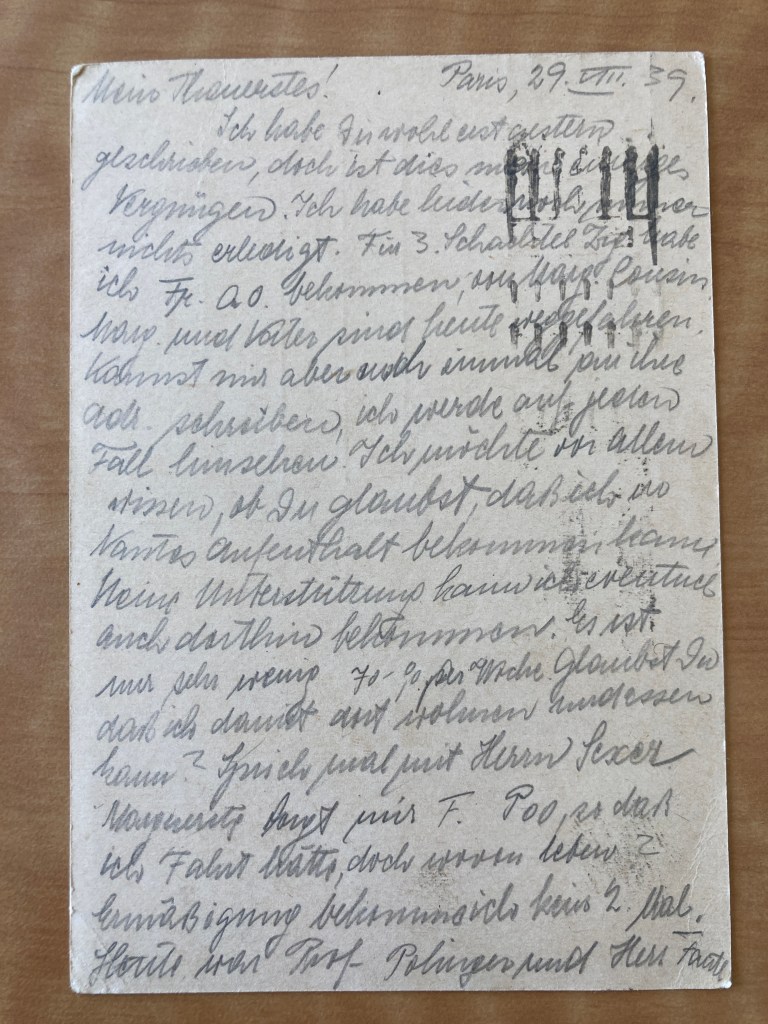 Mein Theuerstes! Paris, 29. VIII. 39.
Ich habe Dir wohl erst gestern
geschrieben, doch ist dies mein einziges
Vergnügen. Ich habe leider noch immer
nichts erledigt. Für 3. Schachtel Zig. habe
ich Fr. 20. bekommen, von Marg. Cousin
Marg. und Vater sind heute weggefahren.
Kannst mir aber noch einmal an ihre
Adr. schreiben, ich werde auf jeden
Fall hinsehen. Ich möchte vor allem
wissen, ob Du glaubst, daß ich in
Nantes Aufenthalt bekommen kann
Meine Unterstützung kann ich eventuel
auch dorthin bekommen. Es ist
nur sehr wenig 70 per Woche. Glaubst Du
daß ich damit dort wohnen und essen
kann? Sprich mal mit Herrn Sexer
Marguerite borgt mir F. 100, so daß
ich Fahrt hätte, doch wovon leben?
Ermäßigung bekomme ich kein 2. Mal.
Heute war Prof. Polinger und Herr